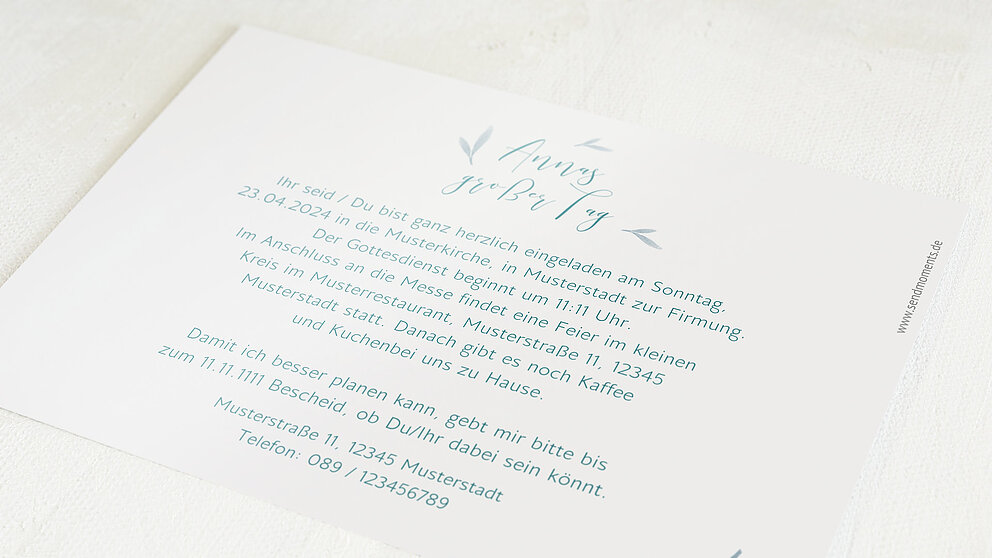 Annas
großer Tag
Ihr seid / Du bist ganz herzlich eingeladen am Sonntag,
23.04.2024 in die Musterkirche, in Musterstadt zur Firmung.
Der Gottesdienst beginnt um 11:11 Uhr.
Im Anschluss an die Messe findet eine Feier im kleinen
Kreis im Musterrestaurant, Musterstraße 11, 12345
Musterstadt statt. Danach gibt es noch Kaffee
und Kuchenbei uns zu Hause.
Damit ich besser planen kann, gebt mir bitte bis
zum 11.11.1111 Bescheid, ob Du/Ihr dabei sein könnt.
Musterstraße 11, 12345 Musterstadt
Telefon: 089 / 123456789
www.sendmoments.de